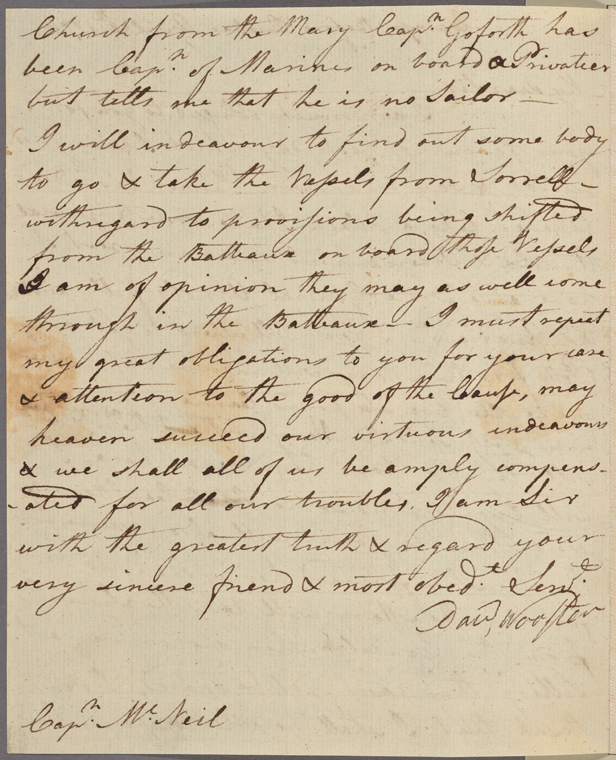 Church from the Mary Capn. Goforth has
been Capn. of Marines on board a Privatier
but tells me that he is no Sailor —
I will indeavour to find out some body
to go & take the Vessels from Sorrell —
withregard to provissions being shifted
from the Batteaux on board those Vessels
I am of opinion they may as well come
through in the Batteaux — I must repeat
my great obligations to you for your care
& attention to the good of the Cause, may
heaven succeed our virtuous indeavours
& we shall all of us be amply compens-
-ated for all our troubles. I am Sir
with the greatest truth & regard your
very sincere friend & most obedt. Servt.
Davd, Wooster
Capn. Mc. Neil